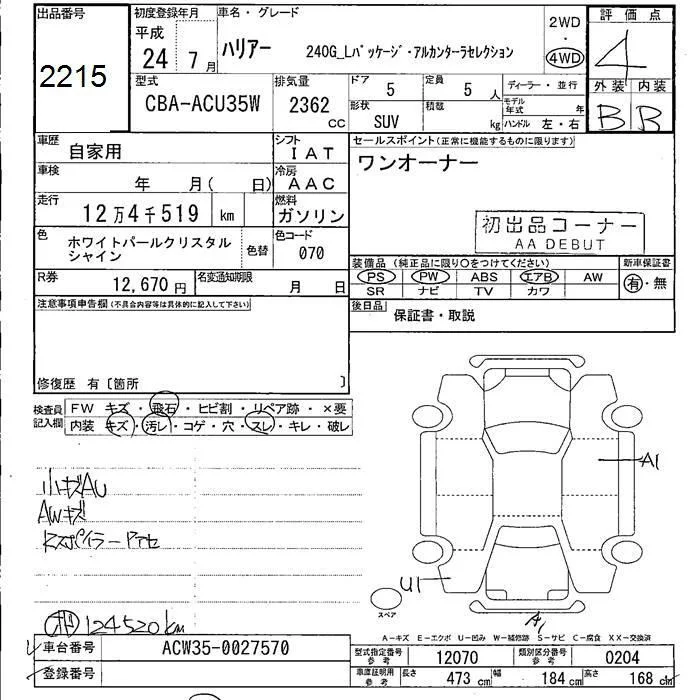 出品番号
2215
初度登録年月
平成
24 7月
車名・グレード
ハリアー 240G_Lパッケージ・アルカンターラセレクション
2WD
・
4WD
評価点
4
型式
CBA-ACU35W
排気量
2362
CC
ドア 5
定員 5 人
形状 SUV
積載 kg
ディーラー・並行
モデル年式 年
ハンドル 左・右
外装 内装
B B
車歴 自家用
シフト
IAT
車検 年 月( 日)
冷房
AAC
走行
12万4千519 km
燃料
ガソリン
色
ホワイトパールクリスタル
シャイン
色替
色コード
070
R券 12,670 円
名変通知期限 月 日
セールスポイント(正常に機能するものに限ります)
ワンオーナー
初出品コーナー
AA DEBUT
装備品(純正品に限り○をつけてください)
新車保証書
PS PW ABS エアB AW
SR ナビ TV カワ
有・無
後日品
保証書・取説
注意事項申告欄(不具合内容等は具体的に記入して下さい)
修復歴 有〔箇所 〕
検査員
記入欄
FW キズ・飛石・ヒビ割・リペア跡・×要
内装 キズ・汚レ・コゲ・穴・スレ・キレ・破レ
小キズAU
AWキズ
124520km
A1
U1
A1
スペア
A-キズ E-エクボ U-凹み W-補修跡 S-サビ C-腐食 XX-交換済
車台番号 ACW35-0027570
登録番号
型式指定番号
参考
12070
類別区分番号
参考
0204
車庫証明用
参考
長さ 473 cm
幅 184 cm
高さ 168 cm